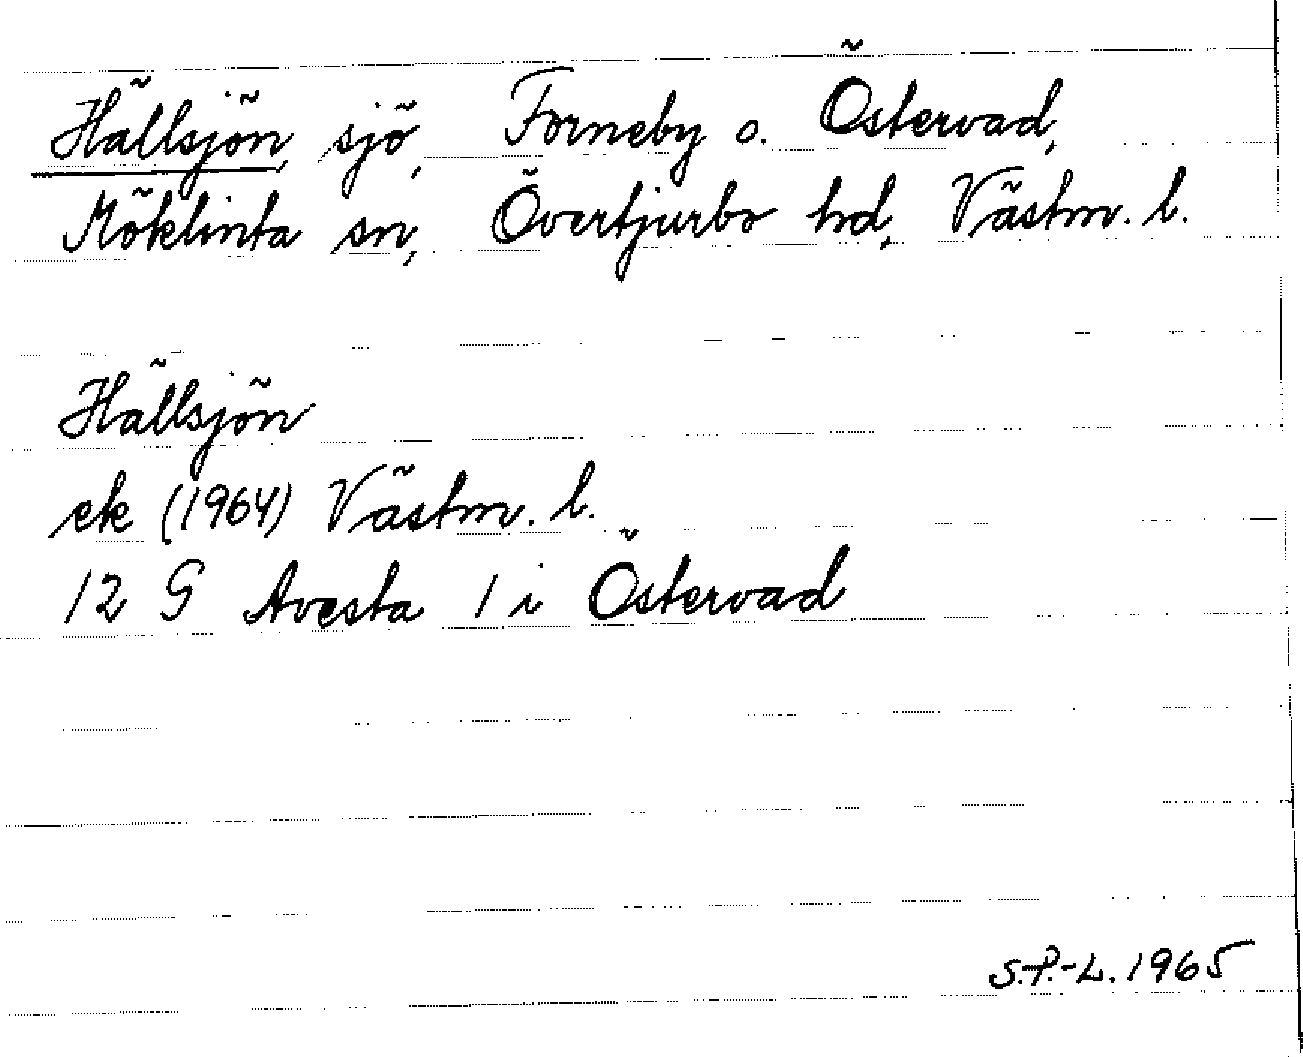 Hällsjön, sjö, Forneby o. Östervad,
Möklinta sn, Övertjurbo hd, Västm. l.
Hällsjön
ek (1964) Västm. l.
12 G Avesta 1 i Östervad
S.P.-L. 1965